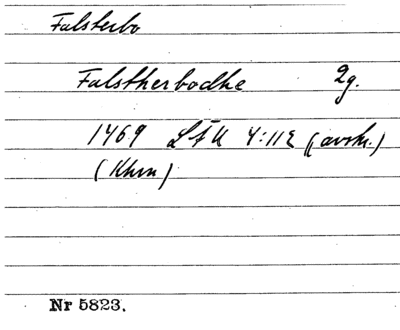 Falsterbo
Falstherbodhe 2g.
1469 LÄU 4:112 (avskr.)
(Khvn)
Nr 5823.